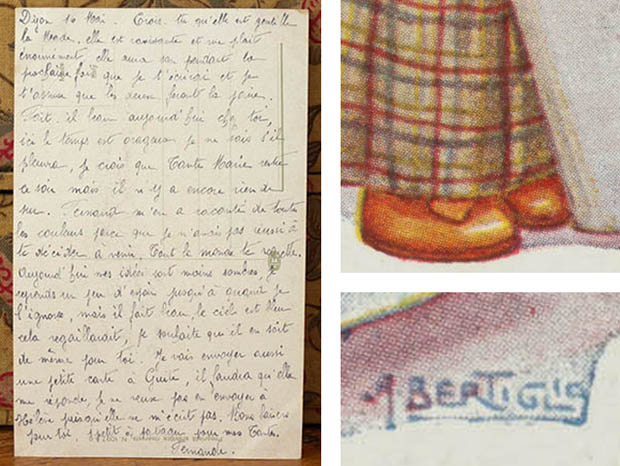 Dijon 16 Mai. Crois-tu qu'elle est gentille
la Mode. elle est ravissante et me plait
énormément, elle aura son pendant la
prochaine fois que je t'écrirai et je
t'assure que les deux feront la paire.
Fait, il beau aujourd'hui chez toi,
ici le temps est orageux je ne sais s'il
pleuvra, je crois que Tante Marie rentre
ce soir mais il n'y a encore rien de
sur. Fernand m'en a raconté de toutes
les couleurs parce que je n'avais pas réussi à
te décider à venir. Tout le monde te
Aujourd'hui mes idées sont moins sombres, je
reprends un peu d'espoir jusqu'à quand je
l'ignore, mais il fait beau, le ciel est bleu
cela regaillardit, je souhaite qu'il en soit
de même pour toi. Je vais envoyer aussi
une petite carte à Guite, il faudra qu'elle
me réponde, je ne veux pas en envoyer à
Hélène puisqu'elle ne m'écrit pas. Bons baisers
pour toi, petit à pour mes Tante.
Fernande.
A BERTIGLIA